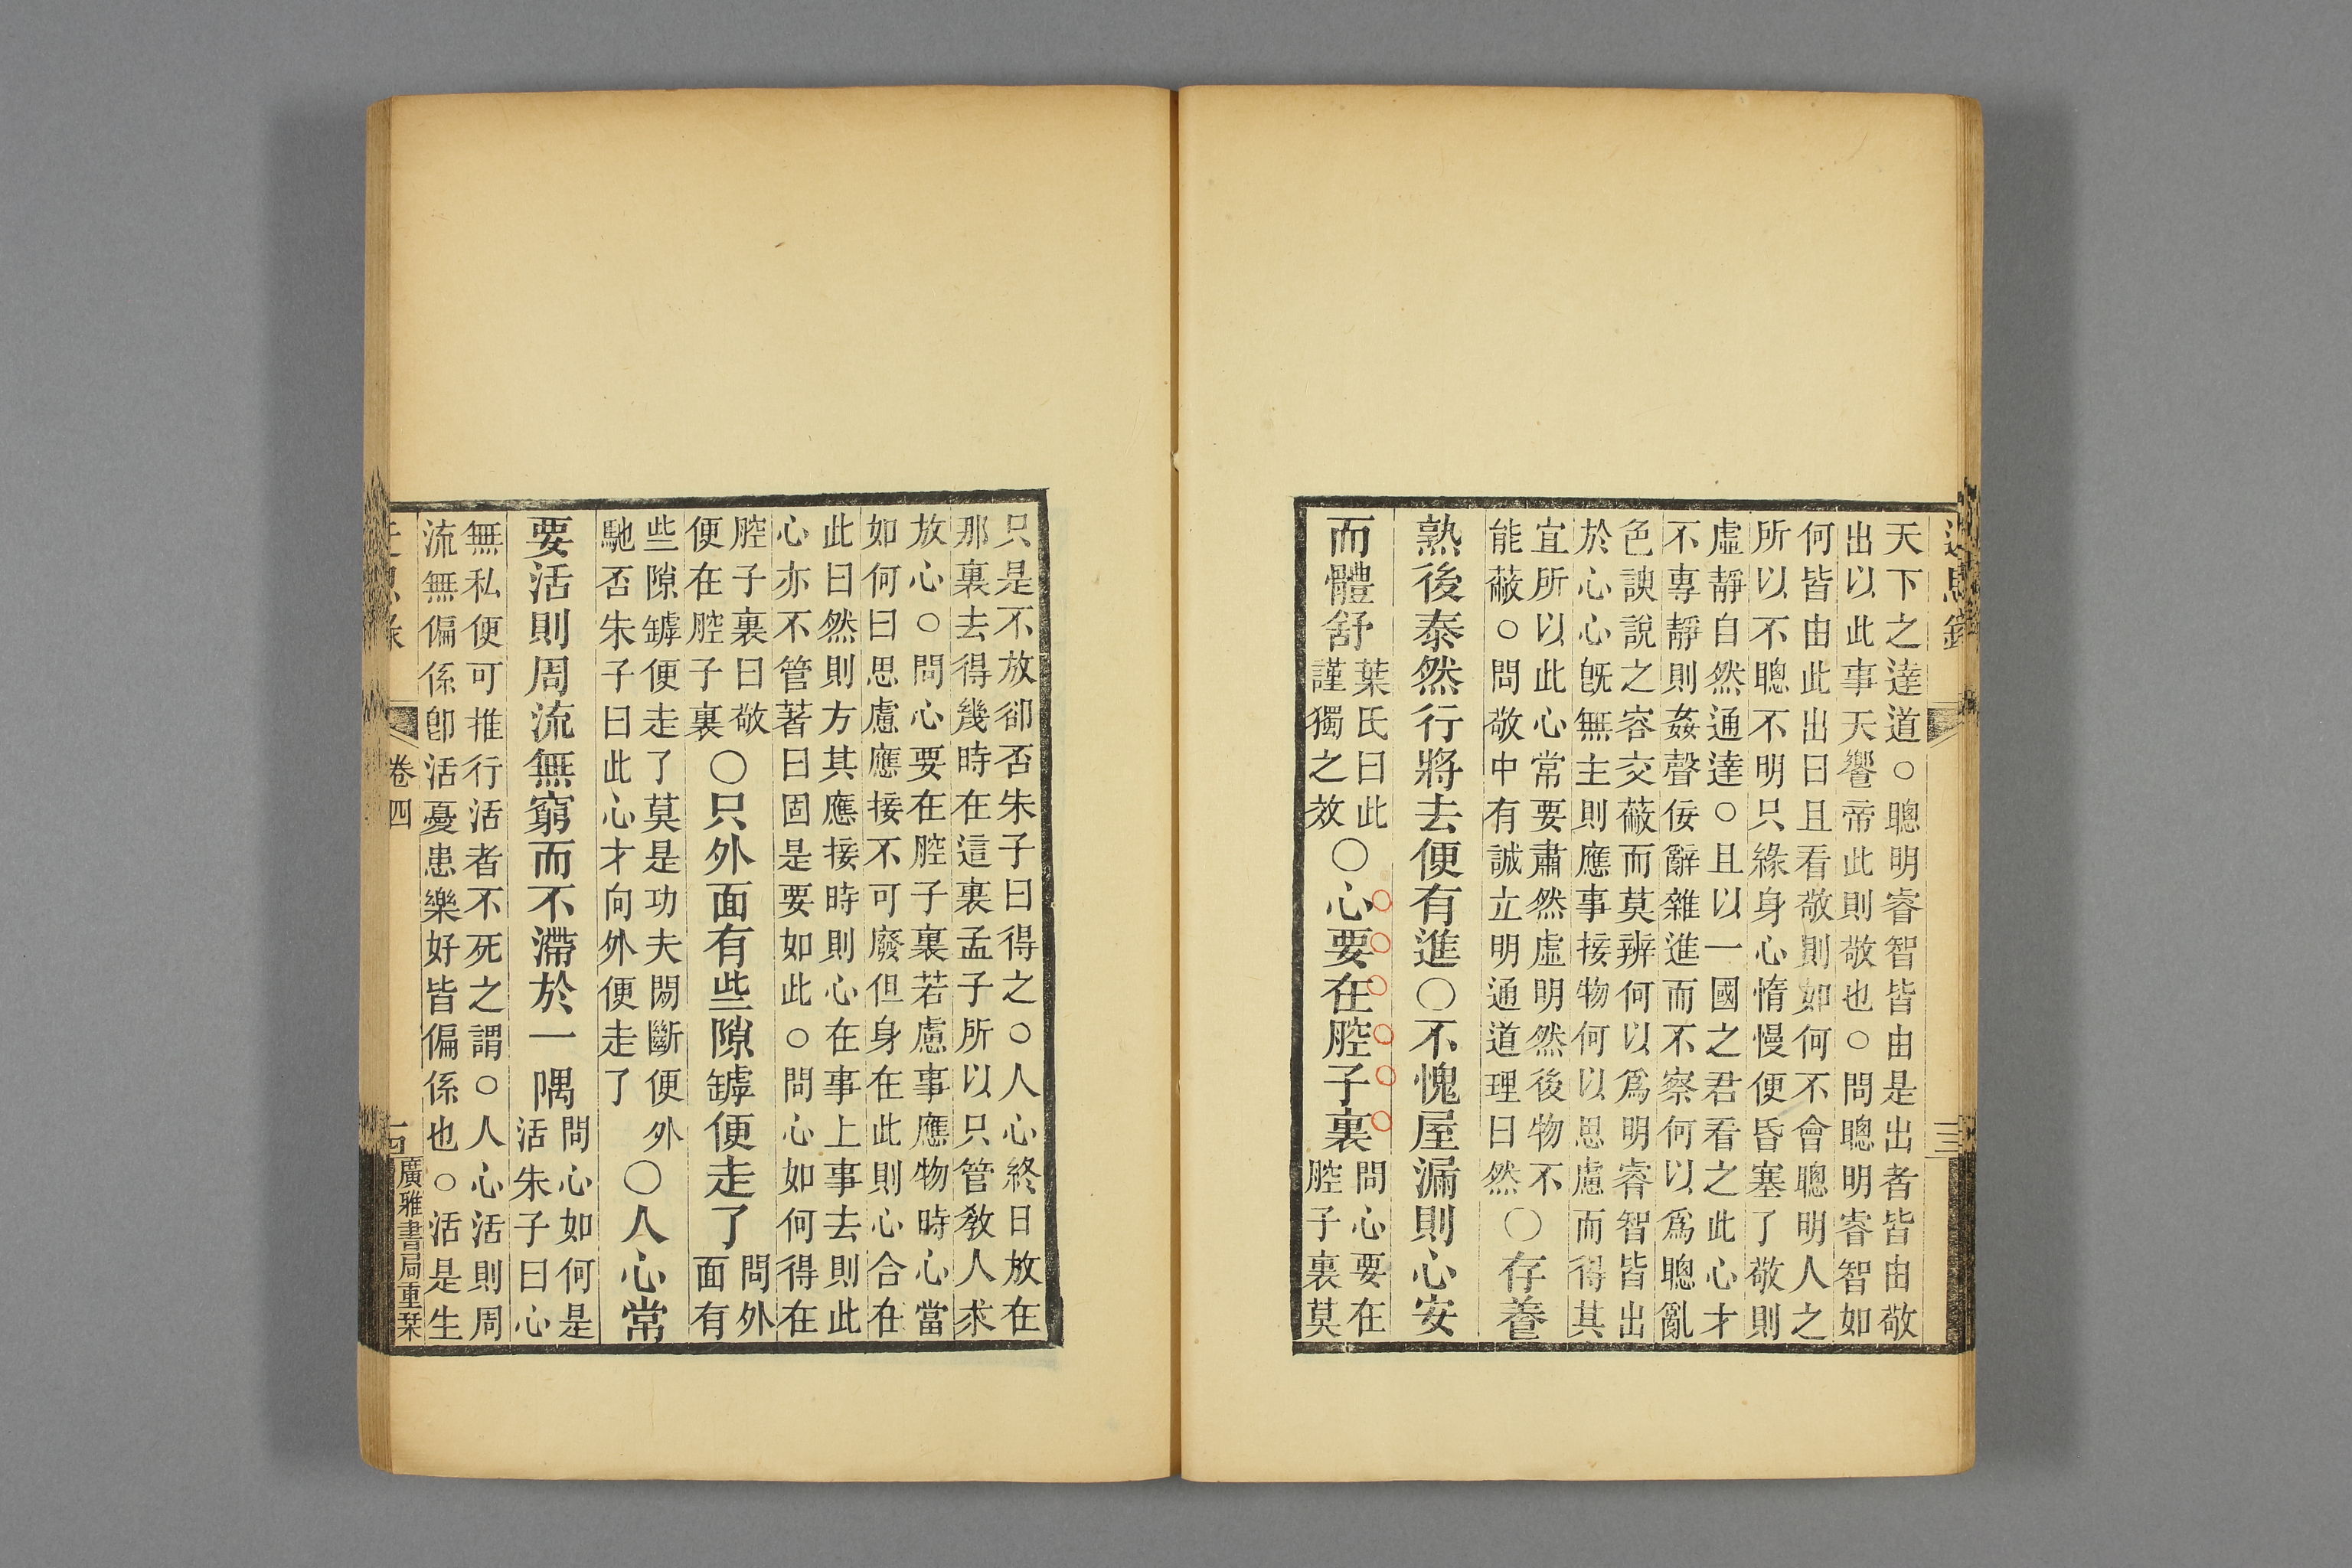 天下之達道○聰明睿智皆由是出者皆由敬
出以此事天饗帝此則敬也○問聰明睿智如
何皆由此出曰且看敬則如何不會聰明人之
所以不聰不明只緣身心惰慢便昏塞了敬則
虛靜自然通達○且以一國之君看之此心才
不專靜則姦聲佞辭雜進而不察何以爲聰亂
色諛說之容交蔽而莫辨何以爲明睿智皆出
於心心旣無主則應事接物何以思慮而得其
宜所以此心常要肅然虛明然後物不
能蔽○問敬中有誠立明通道理曰然
○存養
熟後泰然行將去便有進○不愧屋漏則心安
而體舒
葉氏曰此
謹獨之效
○心要在腔子裏
問心要在
腔子裏莫
只是不放卻否朱子曰得之○人心終日放在
那裏去得幾時在這裏孟子所以只管敎人求
放心○問心要在腔子裏若慮事應物時心當
如何曰思慮應接不可廢但身在此則心合在
此曰然則方其應接時則心在事上事去則此
心亦不管著曰固是要如此○問心如何得在
腔子裏曰敬
便在腔子裏
○只外面有些隙罅便走了
問外
面有
些隙罅便走了莫是功夫閒斷便外
馳否朱子曰此心才向外便走了
○人心常
要活則周流無窮而不滯於一隅
問心如何是
活朱子曰心
無私便可推行活者不死之謂○人心活則周
流無偏係卽活憂患樂好皆偏係也○活是生
卷四
廣雅書局重栞